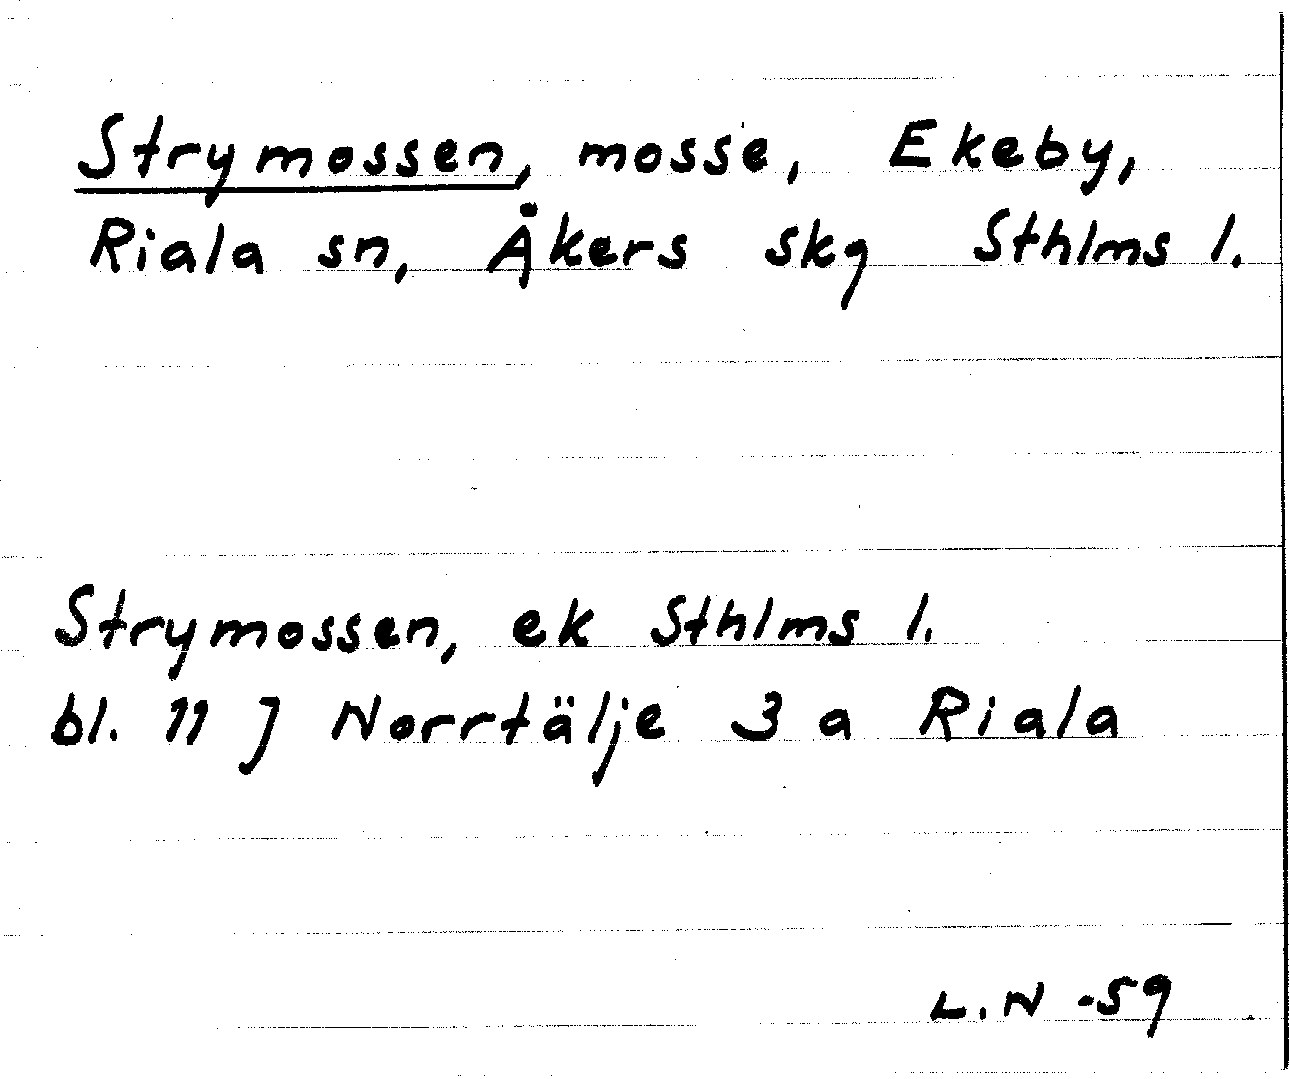 Strymossen, mosse, Ekeby,
Riala sn, Åkers skg Sthlms l.
Strymossen, ek Sthlms l.
bl. 11 J Norrtälje 3 a Riala
L.N -59